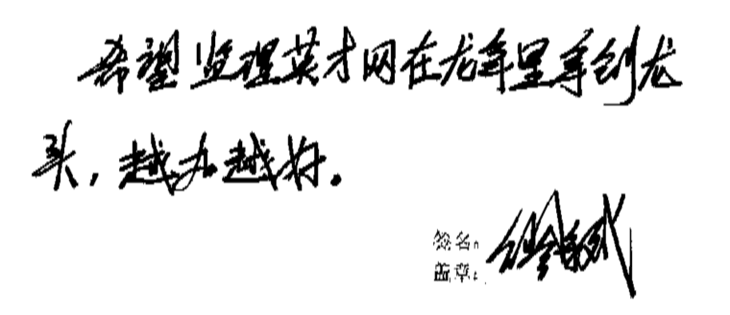 希望监理英才网在龙年里争创龙
头，越办越好。
签名：
盖章：